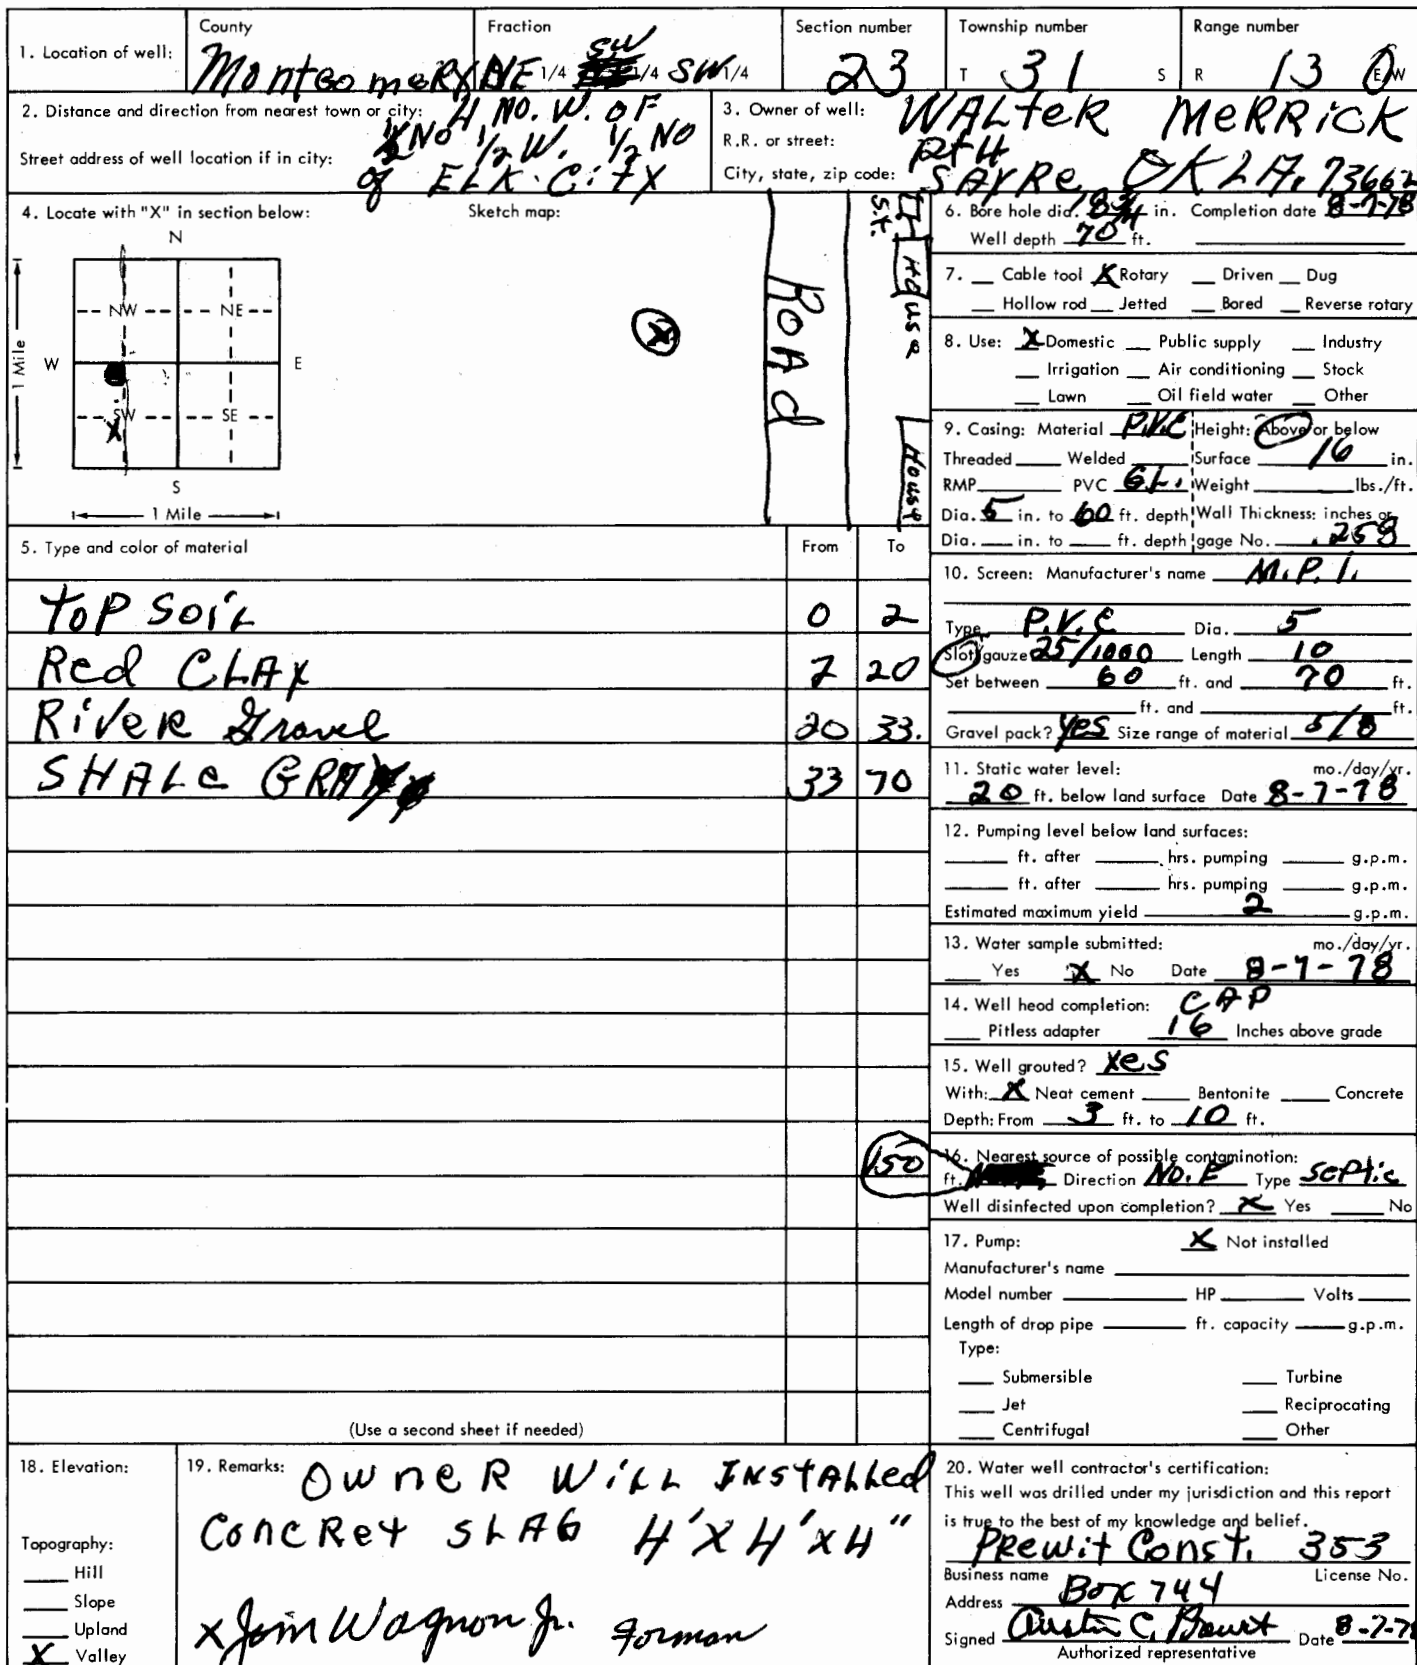 1. Location of well:
County Fraction Section number Township number Range number
Montgomery NE 1/4 SW 1/4 SW 1/4 23 T 31 S R 13 E W
2. Distance and direction from nearest town or city: 4 NO. W. OF
½ NO ½ W. ½ NO
Street address of well location if in city:
of ELK. CiTY
3. Owner of well: WALTER MERRiCK
R.R. or street: Rt 4
City, state, zip code: SAYRE, OKLA. 73662
4. Locate with "X" in section below: Sketch map:
N
NW NE
W E
SW SE
X
S
1 Mile
1 Mile
X
ROAd
S.T.
House
House
5. Type and color of material From To
TOP SOiL 0 2
Red CLAY 2 20
RiVeR Gravel 20 33.
SHALe GRAY 33 70
(Use a second sheet if needed)
6. Bore hole dia. 8 3/4 in. Completion date 8-7-78
Well depth 70 ft.
7. Cable tool X Rotary Driven Dug
Hollow rod Jetted Bored Reverse rotary
8. Use: X Domestic Public supply Industry
Irrigation Air conditioning Stock
Lawn Oil field water Other
9. Casing: Material P.V.C Height: Above or below
Threaded Welded Surface 16 in.
RMP PVC GL. Weight lbs./ft.
Dia. 5 in. to 60 ft. depth Wall Thickness: inches or
Dia. in. to ft. depth gage No. .258
10. Screen: Manufacturer's name M.P.I.
Type P.V.C Dia. 5
Slot/gauze 25/1000 Length 10
Set between 60 ft. and 70 ft.
ft. and ft.
Gravel pack? Yes Size range of material 5/8
11. Static water level: mo./day/yr.
20 ft. below land surface Date 8-7-78
12. Pumping level below land surfaces:
ft. after hrs. pumping g.p.m.
ft. after hrs. pumping g.p.m.
Estimated maximum yield 2 g.p.m.
13. Water sample submitted: mo./day/yr.
Yes X No Date 8-7-78
14. Well head completion: CAP
Pitless adapter 16 Inches above grade
15. Well grouted? Yes
With: X Neat cement Bentonite Concrete
Depth: From 3 ft. to 10 ft.
16. Nearest source of possible contamination:
150 ft. Direction NO. E Type SePtic
Well disinfected upon completion? X Yes No
17. Pump: X Not installed
Manufacturer's name
Model number HP Volts
Length of drop pipe ft. capacity g.p.m.
Type:
Submersible Turbine
Jet Reciprocating
Centrifugal Other
18. Elevation:
Topography:
Hill
Slope
Upland
X Valley
19. Remarks: OWNER WiLL INSTALLed
CONCRet SLAG 4' X 4' X 4"
X Jim Wagnon Jr. Forman
20. Water well contractor's certification:
This well was drilled under my jurisdiction and this report
is true to the best of my knowledge and belief.
PRewit Const. 353
Business name License No.
Address Box 744
Signed Austin C. Prewit Date 8-7-78
Authorized representative